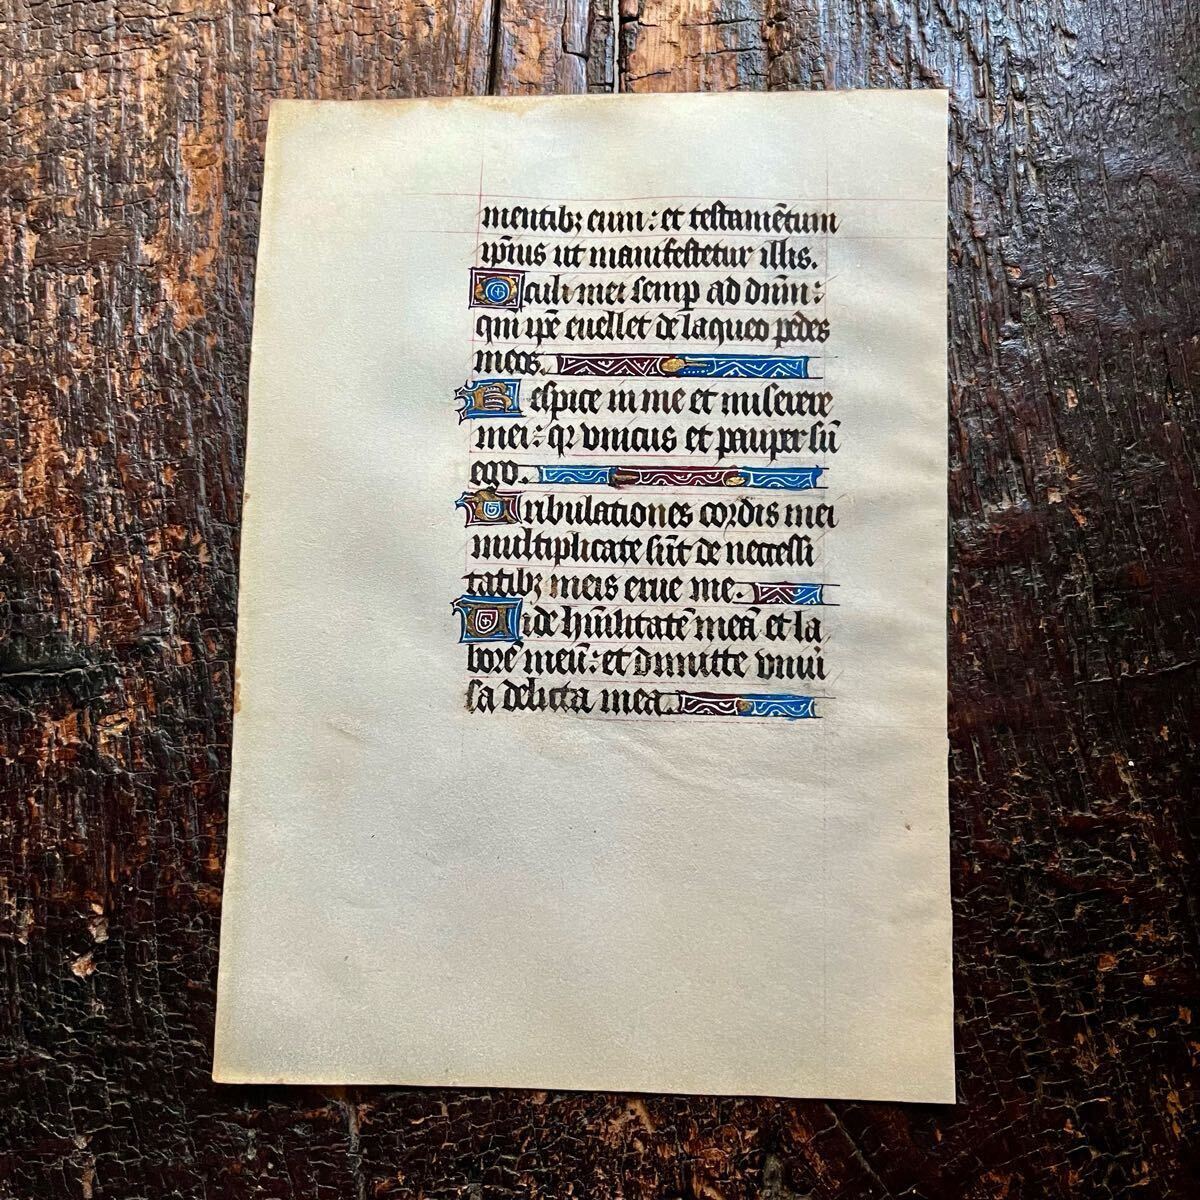 mentibꝫ eum : et testamētum
ip̄ius ut manifestetur illis.
Oculi mei semp ad dn̄m :
qui ip̄e euellet de laqueo pedes
meos.
Respice in me et miserere
mei : qꝛ vnicus et pauper sū
ego.
Tribulationes cordis mei
multiplicate sūt de necessi
tatibꝫ meis erue me.
Vide hūilitatē meā et la
borē meū : et dimitte vniū
sa delicta mea.